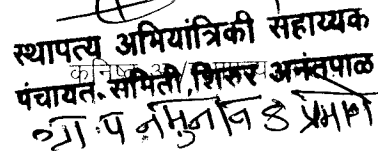 स्थापत्य अभियांत्रिकी सहाय्यक
पंचायत समिती, शिरुर अनंतपाळ
ग्रा. प नमुना नं 8 प्रमाणे